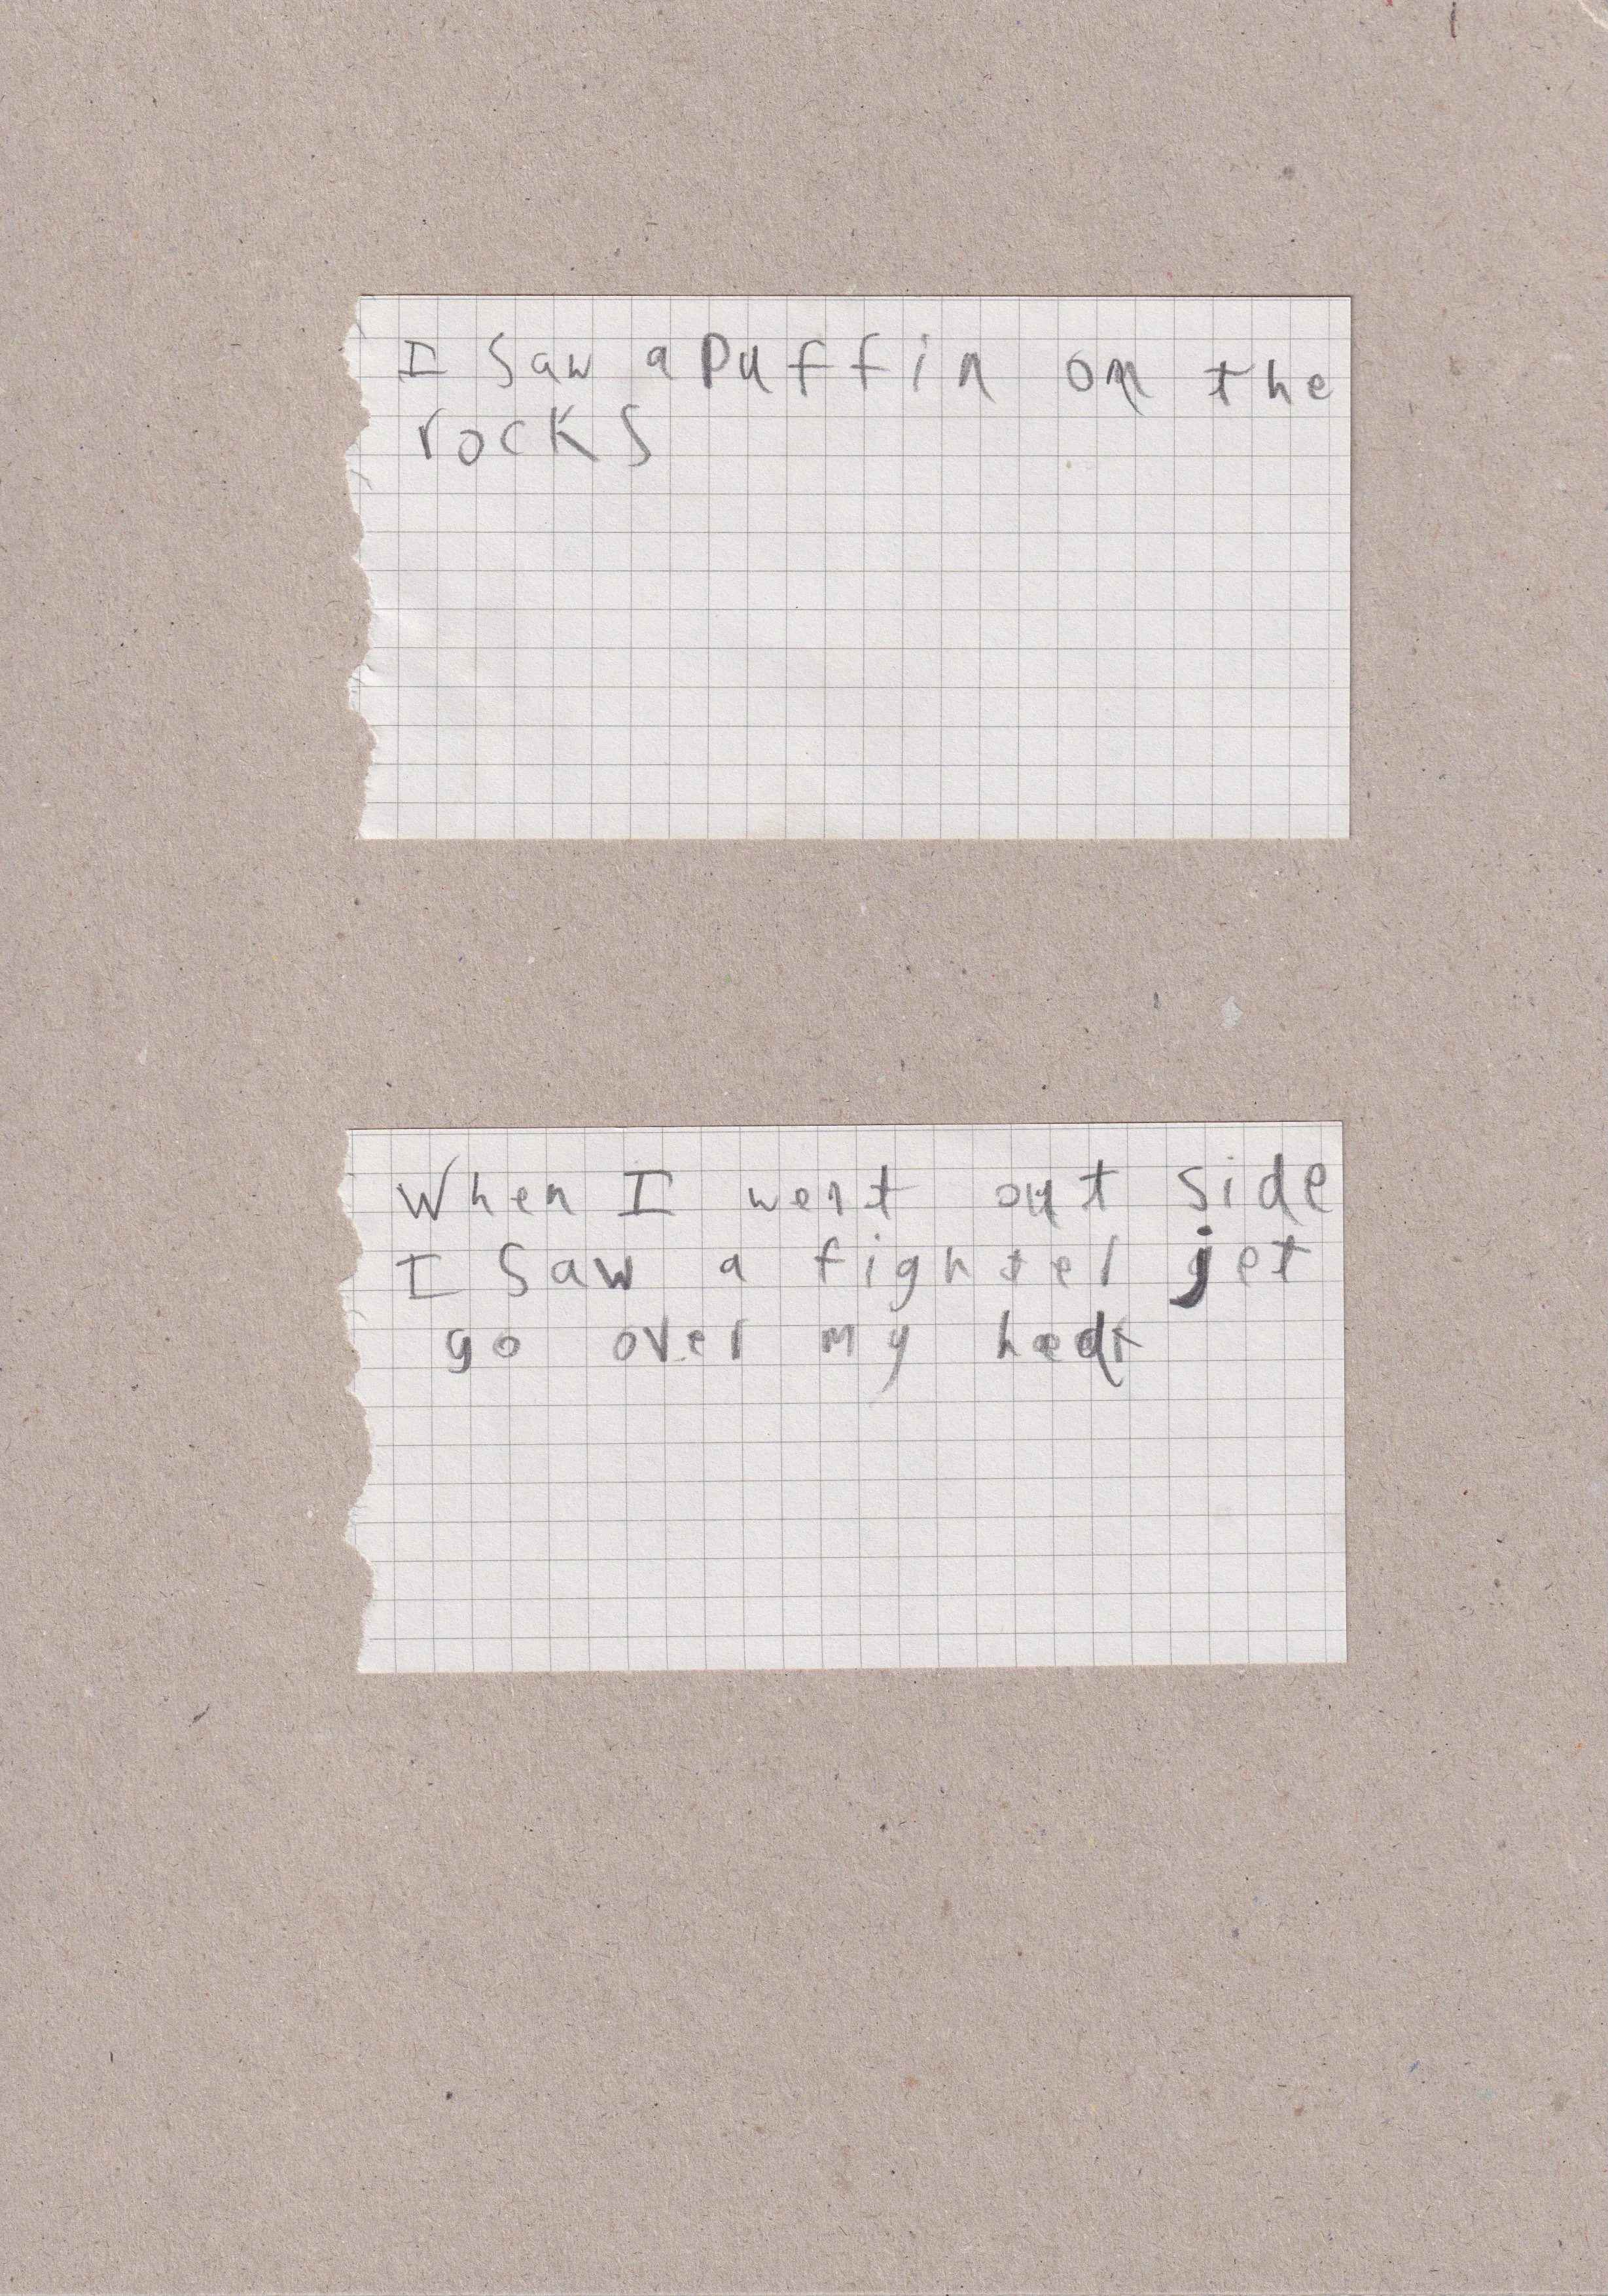 I Saw a Puffin on the
rocks
When I went out side
I Saw a fighter jet
go over my